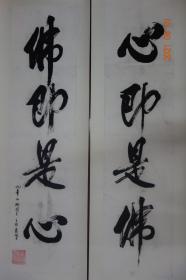 心即是佛
佛即是心